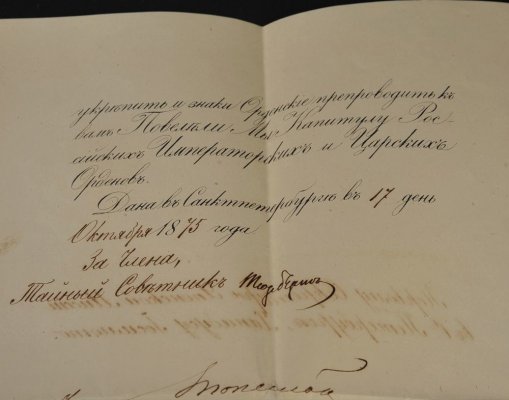 укрѣпить и знаки Орденскіе препроводить къ
вамъ Повелѣли Мы Капитулу Рос-
сійскихъ Императорскихъ и Царскихъ
Орденовъ.
Дана въ Санктпетербургѣ въ 17 день
Октября 1875 года
За Члена,
Тайный Совѣтникъ